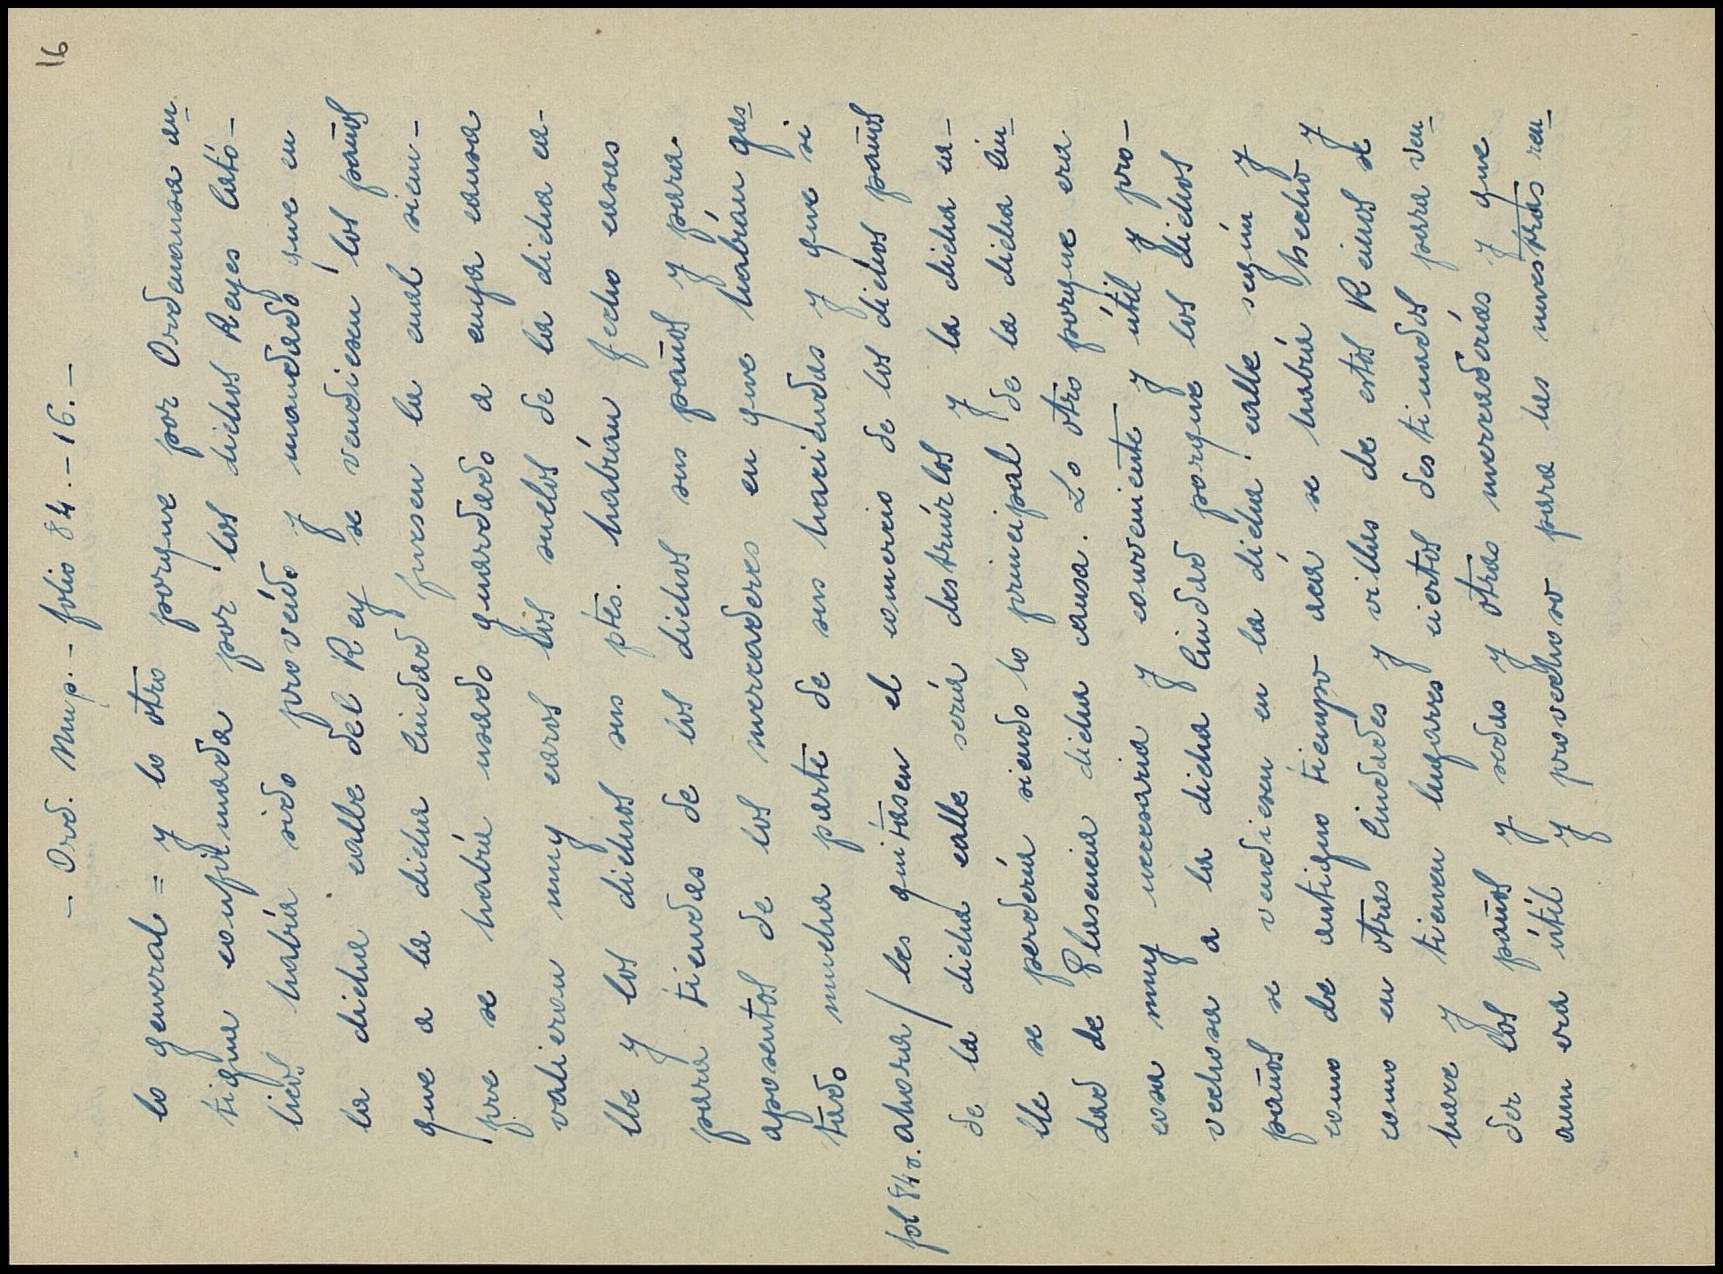 16
- Ord. Mup. - folio 84 - - 16. -
lo general = y lo otro porque por Ordenansa an-
tigua confirmada por los dichos Reyes Cató-
licos habría sido proveído y mandado que en
la dicha calle del Rey se vendiesen los paños
que a la dicha Ciudad fuesen la cual siem-
pre se habría usado guardado a cuya causa
valieron muy caros los suelos de la dicha ca-
lle y los dichos sus ptes. habrían fecho casas
para tiendas de los dichos sus paños y para
aposentos de los mercaderes en que habrían gas-
tado mucha parte de sus haciendas y que si
fol 84 v. ahora / les quitasen el comercio de los dichos paños
de la dicha calle sería destruírlos y la dicha ca-
lle se perdería siendo lo principal de la dicha Ciu-
dad de Plasencia dicha causa. Lo otro porque era
cosa muy necesaria y conveniente y útil y pro-
vechosa a la dicha Ciudad porque los dichos
paños se vendiesen en la dicha calle según y
como de antiguo tiempo acá se habría hecho y
como en otras Ciudades y villas de estos Reinos se
hace y tienen lugares ciertos destinados para ven-
der los paños y sedas y otras mercaderías y que
aun era útil y provechoso para las nuestras ren-